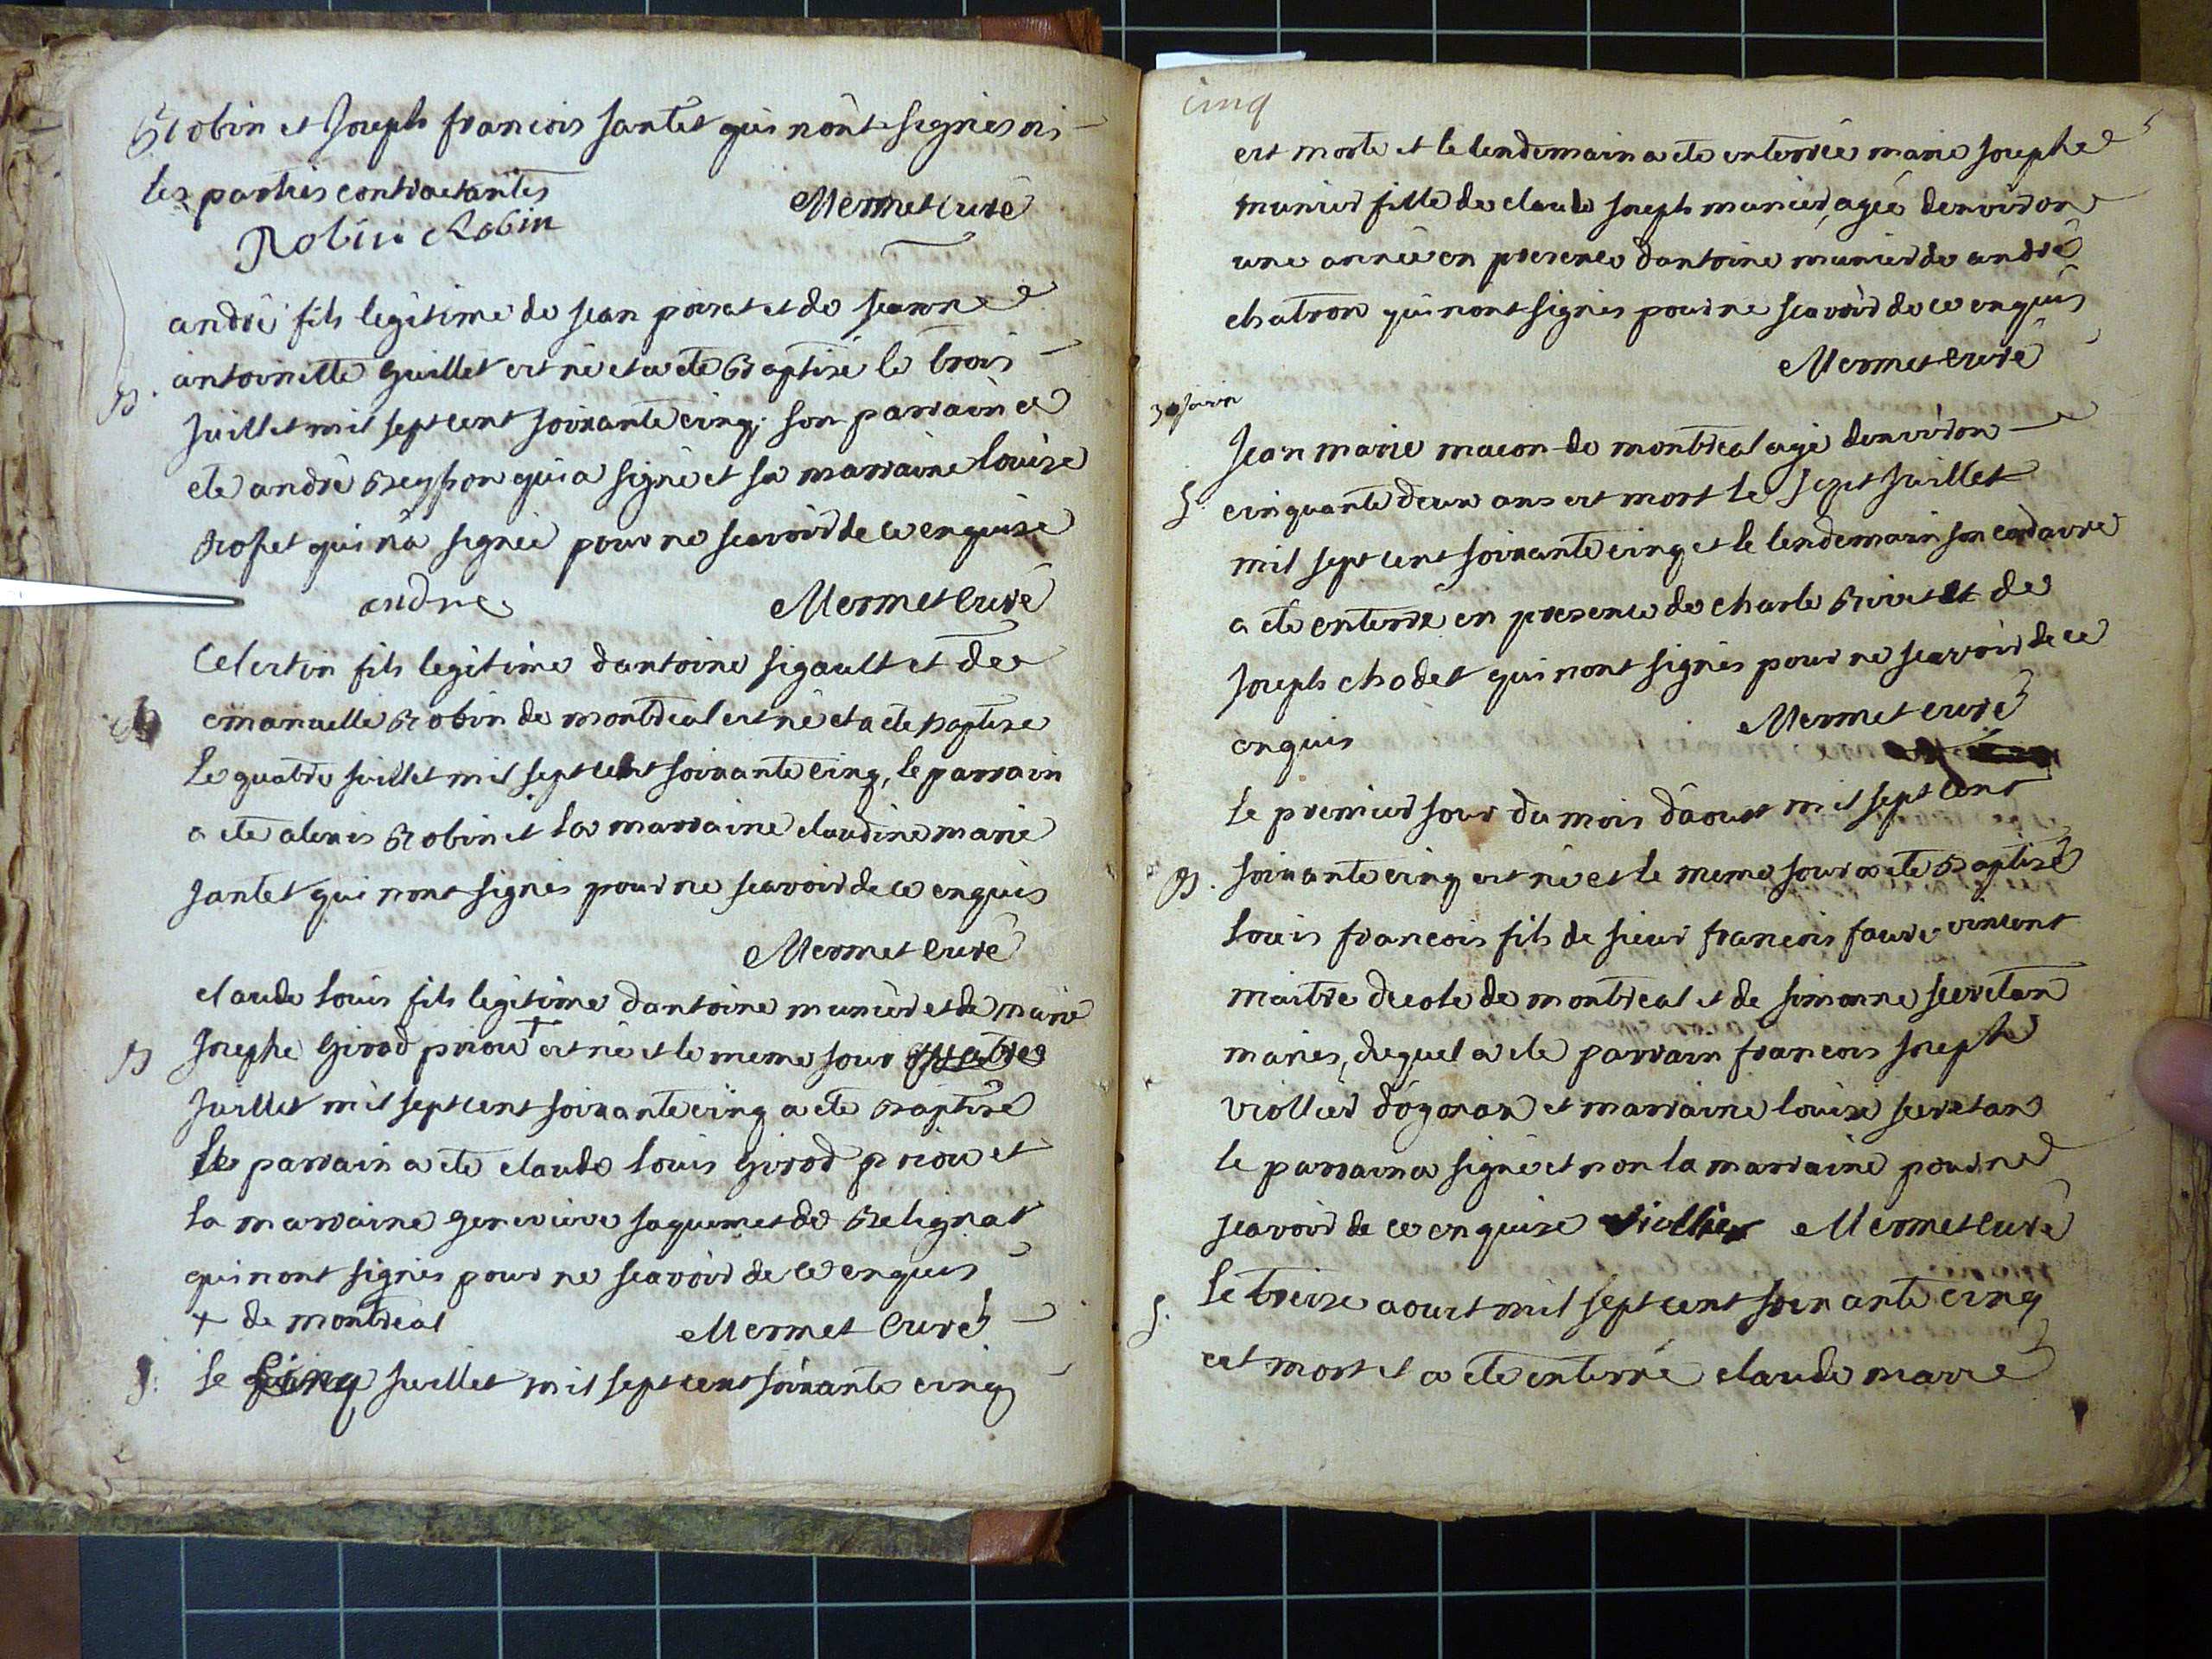 Robin et Joseph francois Jantet qui n'ont signés ni
les parties contractantes
Mermet curé
Robin Robin
andré fils legitime de jean poncet et de jeanne
antoinette Guillet est né et a ete Baptisé le trois
B.
Juillet mil sept cent soixante cinq, son parrain a
ete andré Breysson qui a signé et sa marraine louise
qui n'a signée pour ne scavoir de ce enquise
andre Mermet curé
Celestin fils legitime d'antoine sigault et de
emanuelle Robin de montreal est né et a ete baptisé
Le quatre juillet mil sept cent soixante cinq, le parrain
a ete alexis Robin et la marraine claudine marie
Jantet qui n'ont signés pour ne scavoir de ce enquis
Mermet curé
claude louis fils legitime d'antoine munier et de marie
B
Josephe Girod priou + est né et le meme jour quatre
Juillet mil sept cent soixante cinq a ete Baptisé
Le parrain a ete claude louis Girod priou et
la marraine genevieve jaquemet de Belignat
qui n'ont signés pour ne scavoir de ce enquis
+ de montreal
Mermet Curé
S. Le cinq Juillet mil sept cent soixante cinq
cinq
5
est morte et le lendemain a ete enterrée marie josephe
munier fille de claude joseph munier, agée d'environ
une année en presence d'antoine munier de andré
chatron qui n'ont signés pour ne scavoir de ce enquis
Mermet curé
30 juin
Jean marie macon de montreal agé d'environ
S. cinquante deux ans est mort le sept Juillet
mil sept cent soixante cinq et le lendemain son cadavre
a ete enterré en presence de charle et de
Joseph chodet qui n'ont signés pour ne scavoir de ce
enquis
Mermet curé
Le premier jour du mois d'aoust mil sept cent
B. soixante cinq est né et le meme jour a ete Baptisé
Louis francois fils de sieur francois faure vincent
maitre decole de montreal et de simonne secretan
mariés, duquel a ete parrain francois joseph
viollier d'oyonax et marraine louise secretan
le parrain a signé et non la marraine pour ne
scavoir de ce enquise viollier Mermet curé
S. Le treize aoust mil sept cent soixante cinq
est mort et a ete enterré claude marie